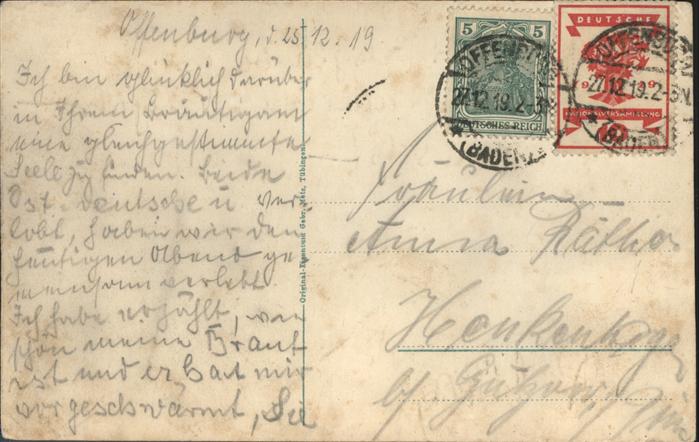 Offenburg, d. 25.12.19
Ich bin glücklich darüber
in Ihrem Bräutigam
eine gleichgestimmte
Seele zu finden. Beide
Ost-Deutsche u ver-
lobt, haben wir den
heutigen Abend ge-
meinsam verlebt.
Ich habe erzählt, wie
schön meine Braut
ist und er hat mir
vorgeschwärmt,
Original-Eigentum Gebr. Metz, Tübingen
5 5
DEUTSCHES REICH
OFFENBURG
27.12.19.2-3N.
(BADEN)
DEUTSCHE
1919
NATIONALVERSAMMLUNG
10
OFFENBURG
27.12.19.2-3N.
(BADEN)
Fräulein
Anna